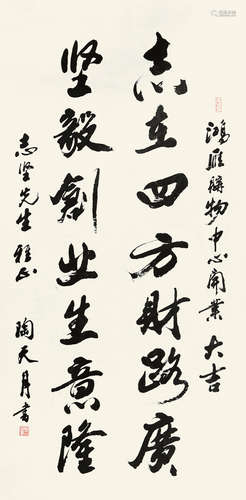 鴻雁購物中心開業 大吉
志在四方財路廣
坚毅創业生意隆
志坚先生 雅正
陶天月書